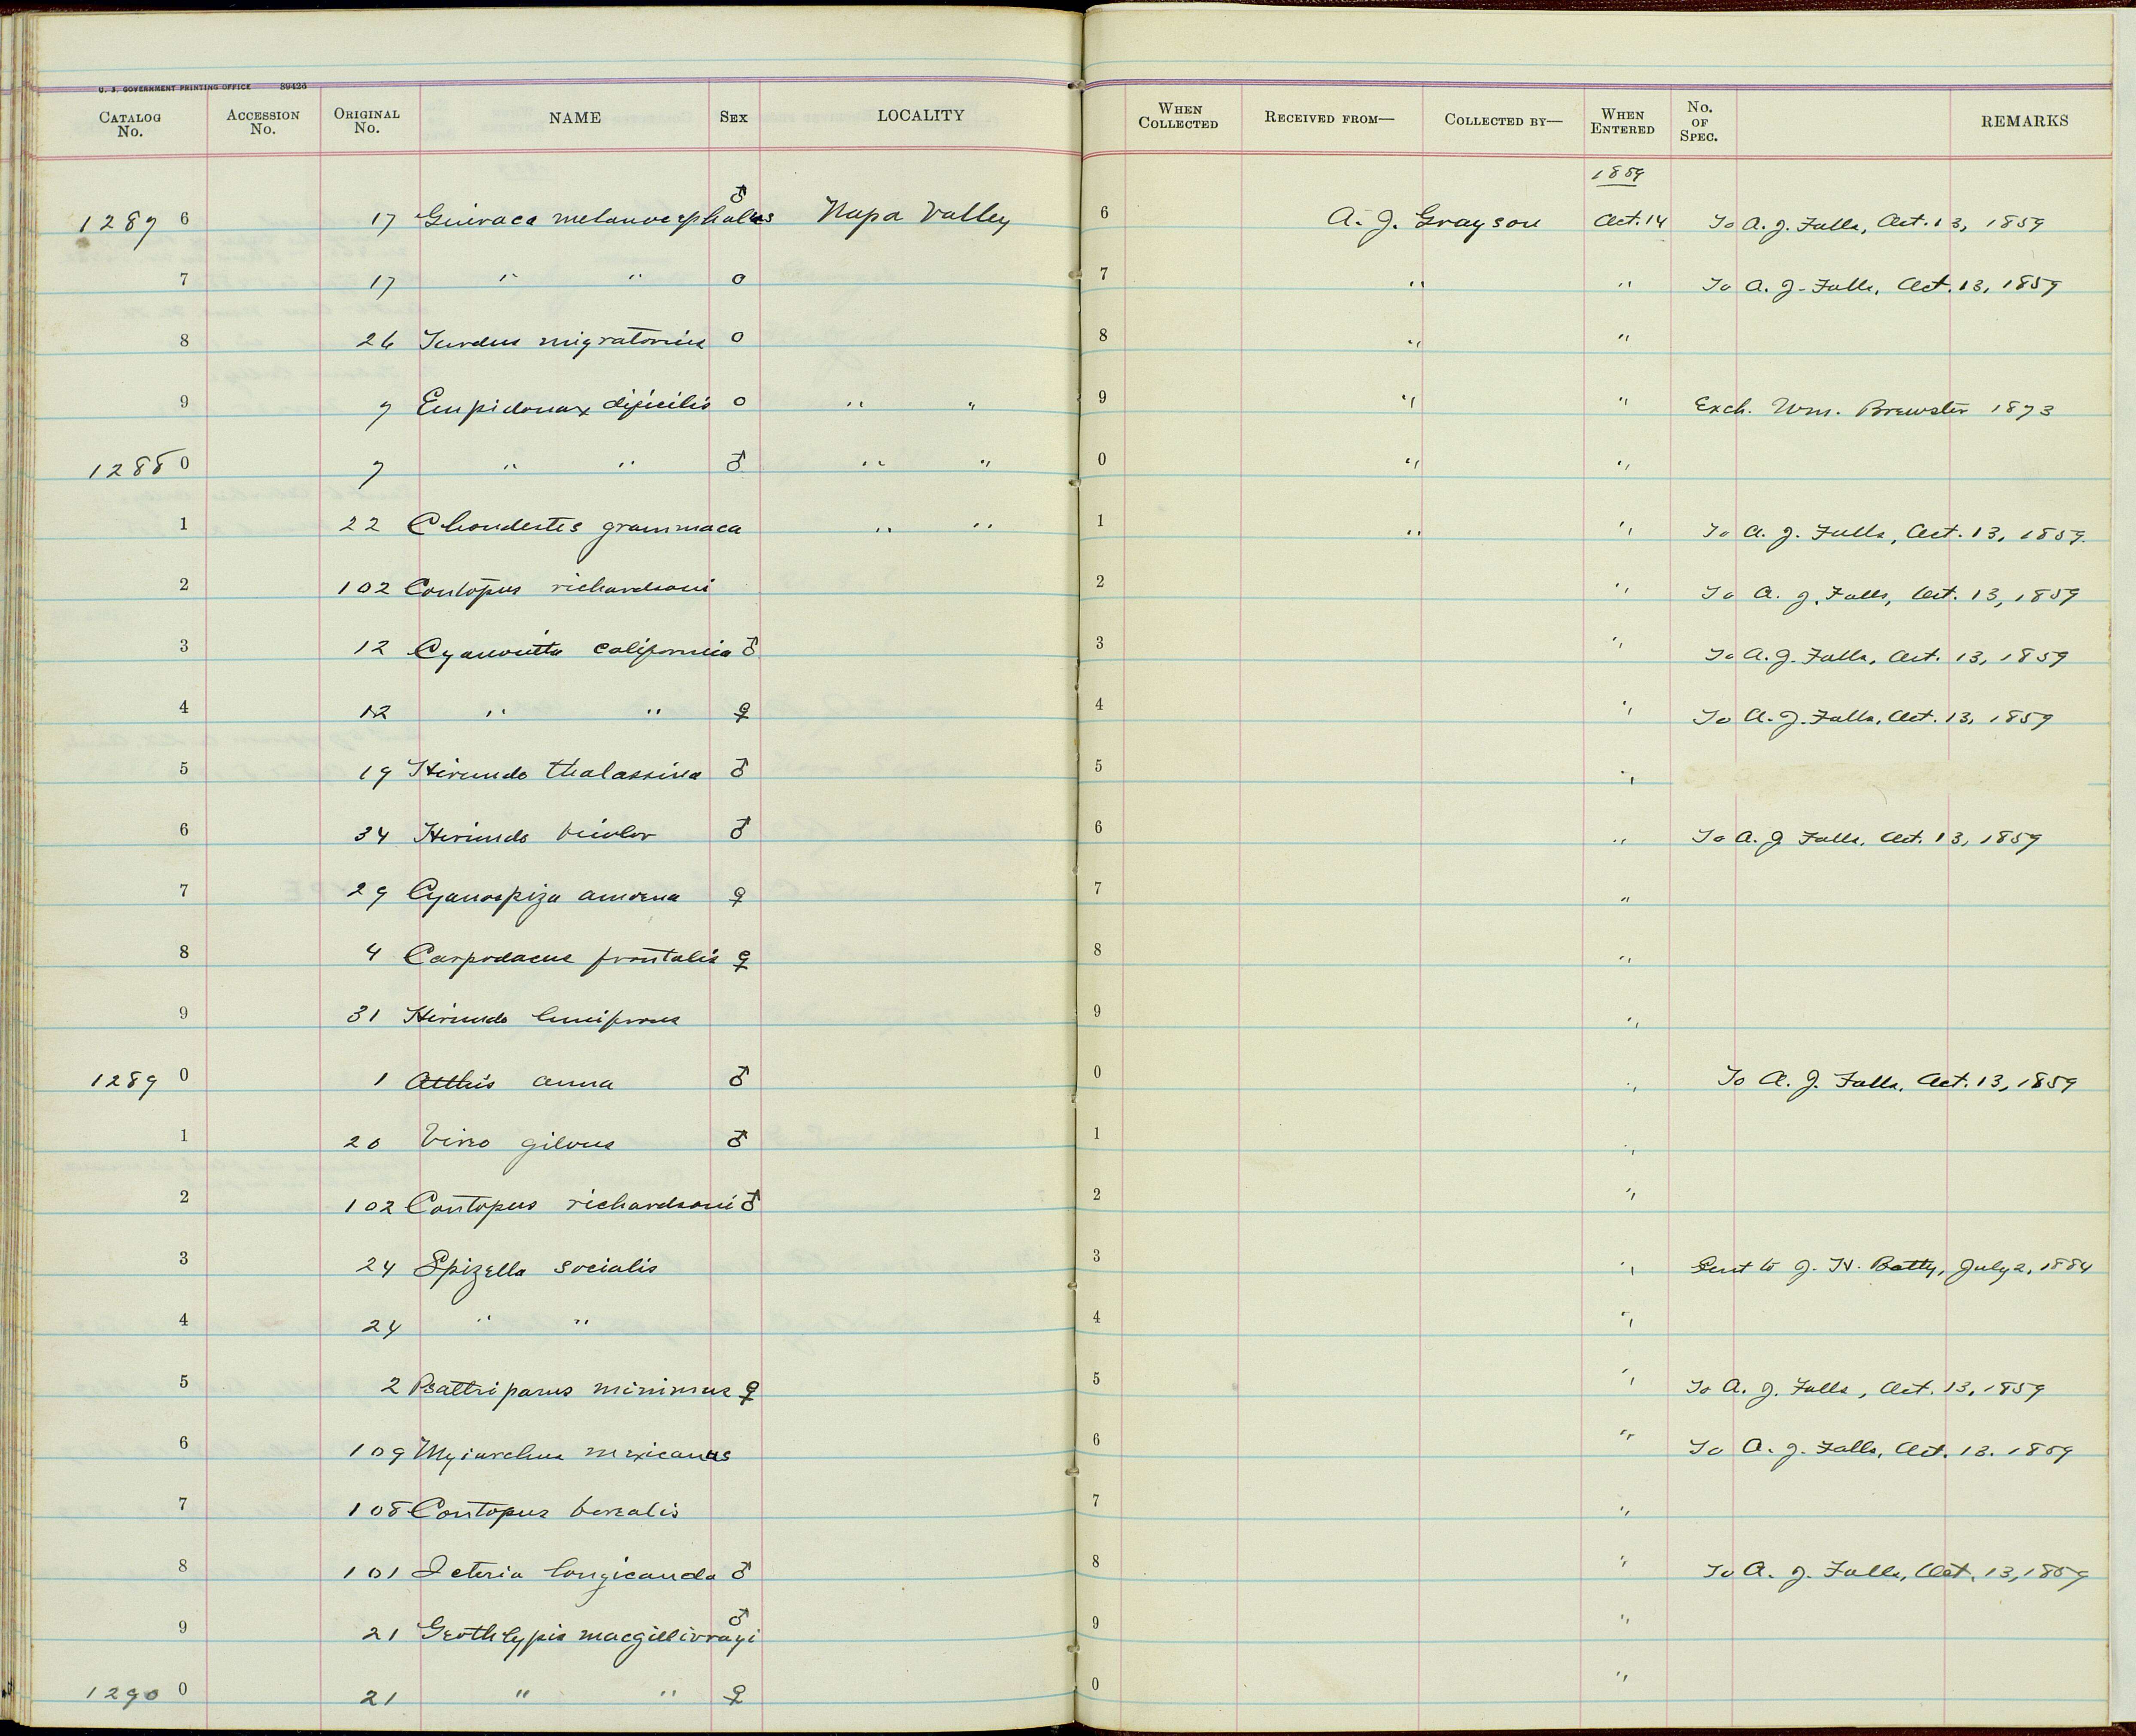 U. S. GOVERNMENT PRINTING OFFICE 89426
CATALOG No. ACCESSION No. ORIGINAL No. NAME SEX LOCALITY WHEN COLLECTED RECEIVED FROM— COLLECTED BY— WHEN ENTERED No. OF SPEC. REMARKS
1859
1287 6 17 Guiraca melanocephalus ♂ Napa Valley 6 A. J. Grayson Oct. 14 To A. J. Falls, Oct. 13, 1859
7 17 " " o 7 " " To A. J. Falls, Oct. 13, 1859
8 26 Turdus migratorius o 8 " "
9 7 Empidonax dificilis o " " 9 " " Exch. Wm. Brewster 1873
1288 0 7 " " ♂ " " 0 " "
1 22 Chondestes grammaca " " 1 " " To A. J. Falls, Oct. 13, 1859.
2 102 Contopus richardsoni 2 " To A. J. Falls, Oct. 13, 1859
3 12 Cyanocitta californica ♂ 3 " To A. J. Falls, Oct. 13, 1859
4 12 " " ♀ 4 " To A. J. Falls, Oct. 13, 1859
5 19 Hirundo thalassina ♂ 5 "
6 34 Hirundo bicolor ♂ 6 " To A. J Falls, Oct. 13, 1859
7 29 Cyanospiza amoena ♀ 7 "
8 4 Carpodacus frontalis ♀ 8 "
9 31 Hirundo lunifrons 9 "
1289 0 1 Atthis anna ♂ 0 " To A. J. Falls, Oct. 13, 1859
1 20 Vireo gilvus ♂ 1 "
2 102 Contopus richardsoni ♂ 2 "
3 24 Spizella socialis 3 " Sent to J. H. Batty, July 2, 1884
4 24 " " 4 "
5 2 Psaltriparus minimus ♀ 5 " To A. J. Falls, Oct. 13, 1859
6 109 Myiarchus mexicanus 6 " To A. J. Falls, Oct. 13. 1859
7 108 Contopus borealis 7 "
8 101 Icteria longicauda ♂ 8 " To A. J. Falls, Oct. 13, 1859
9 21 Geothlypis macgillivrayi ♂ 9 "
1290 0 21 " " ♀ 0 "